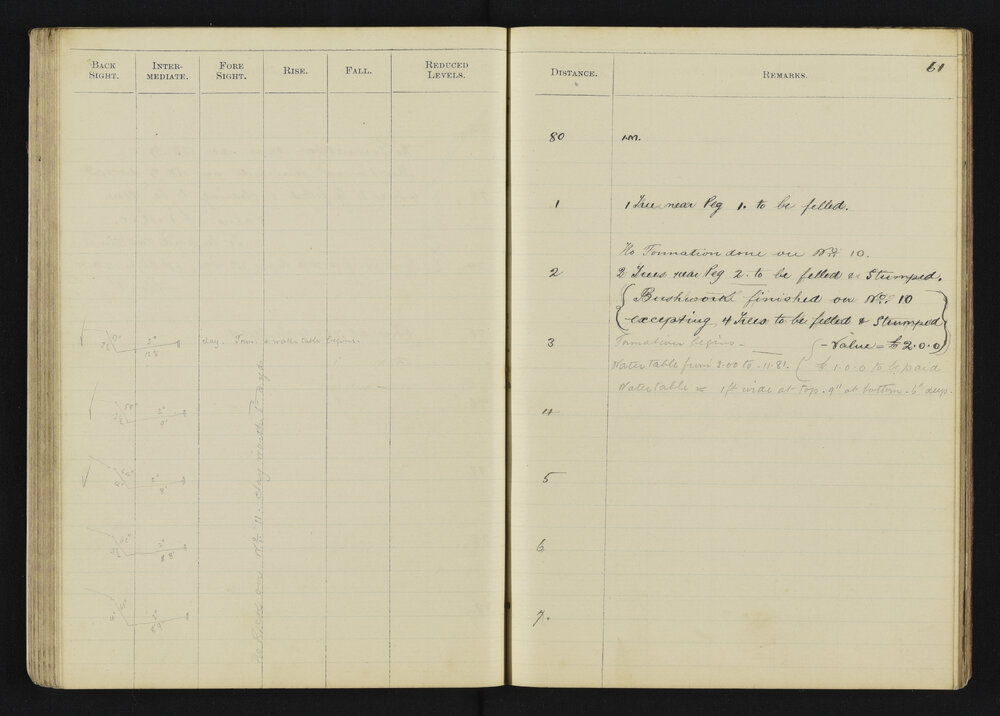 BACK SIGHT. INTER-MEDIATE. FORE SIGHT. RISE. FALL. REDUCED LEVELS.
day. Form. & water table begins.
on No. 11. clay worth
DISTANCE. REMARKS. 61
80 m.
1 1 Tree near Peg 1. to be felled.
No Formation done on No. 10.
2 2 Trees near Peg 2. to be felled & Stumped.
Bushwork finished on No. 10
excepting 4 Trees to be felled & Stumped
3 Formation begins - - Value = £2.0.0
Water table from 3.00 to 11.81. £1.0.0 to be paid
Water table = 1ft wide at Top. 9" at bottom. 6" deep.
4
5
6
7.